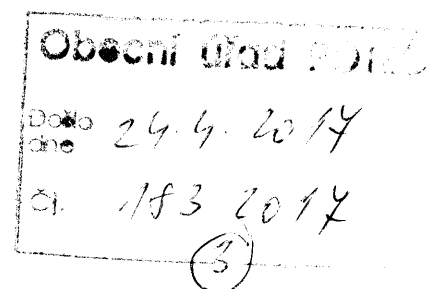 Obecní úřad
Došlo
dne 24.4.2017
Čj. 183 2017
3